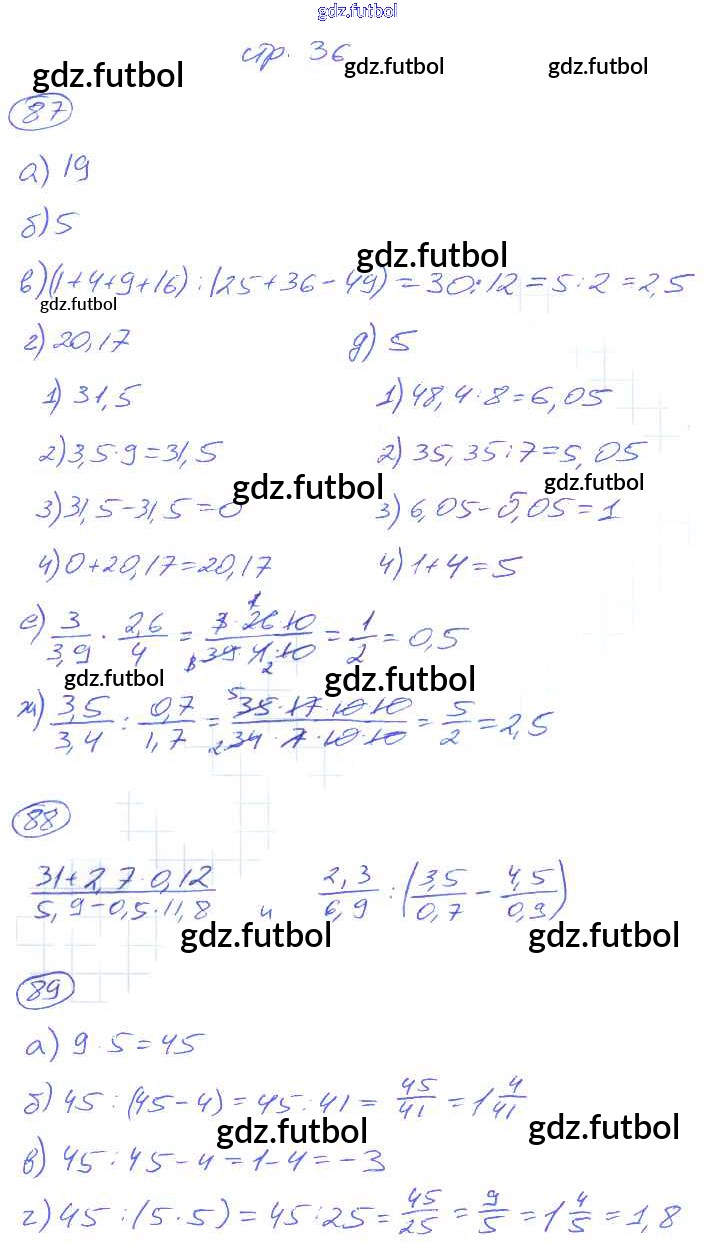 gdz.futbol
стр. 36
gdz.futbol gdz.futbol gdz.futbol
87
а) 19
б) 5
gdz.futbol
в) (1+4+9+16) : (25+36-49) = 30:12 = 5:2 = 2,5
gdz.futbol
г) 20,17 д) 5
1) 31,5 1) 48,4:8=6,05
2) 3,5·9=31,5 2) 35,35:7=5,05
gdz.futbol gdz.futbol
3) 31,5-31,5=0 3) 6,05-5,05=1
4) 0+20,17=20,17 4) 1+4=5
е) 3/3,9 · 2,6/4 = 3·26·10/39·4·10 = 1/2 = 0,5
gdz.futbol gdz.futbol
ж) 3,5/3,4 : 0,7/1,7 = 35·17·10·10/34·7·10·10 = 5/2 = 2,5
88
31+2,7·0,12/5,9-0,5·11,8 и 2,3/6,9 : (3,5/0,7 - 4,5/0,9)
gdz.futbol gdz.futbol
89
а) 9·5=45
б) 45 : (45-4) = 45:41 = 45/41 = 1 4/41
gdz.futbol gdz.futbol
в) 45:45-4=1-4=-3
г) 45 : (5·5) = 45:25 = 45/25 = 9/5 = 1 4/5 = 1,8